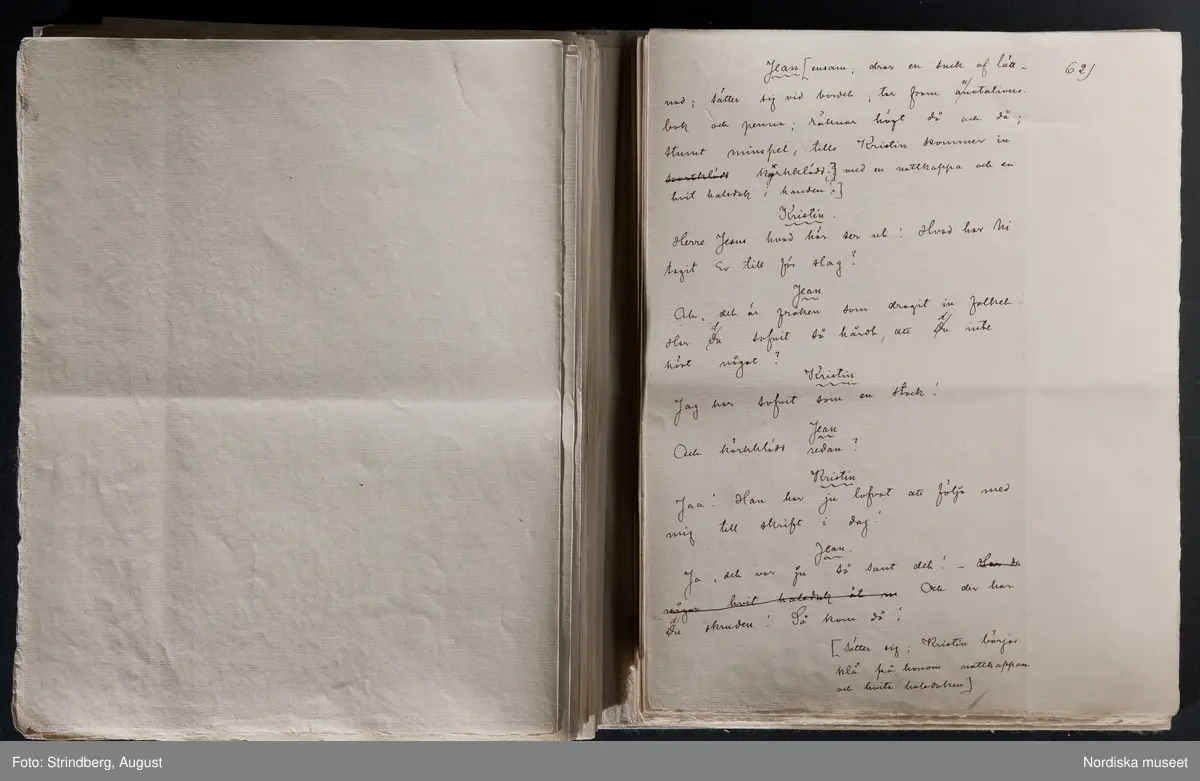 Jean [ensam; drar en suck af lätt-
62)
nad; sätter sig vid bordet; tar fram annotations-
bok och penna; räknar högt då och då;
stumt minspel, tills Kristin kommer in
svartklädd kyrkklädd; med en nattkappa och en
hvit halsduk i handen.]
Kristin.
Herre Jesus hvad här ser ut! Hvad har Ni
tagit Er till för slag?
Jean
Ah, det är fröken som dragit in folket!
Har du sofvit så hårdt, att du inte
hört något?
Kristin
Jag har sofvit som en stock!
Jean
Och kyrkklädd redan?
Kristin
Jaa! Han har ju lofvat att följa med
mig till skrift i dag!
Jean.
Ja, det var ju så sant det! – Har du
någon hvit halsduk åt m Och der har
du skruden! Så kom då!
[Sätter sig; Kristin börjar
klä på honom nattkappan
och hvita halsduken]
Foto: Strindberg, August
Nordiska museet